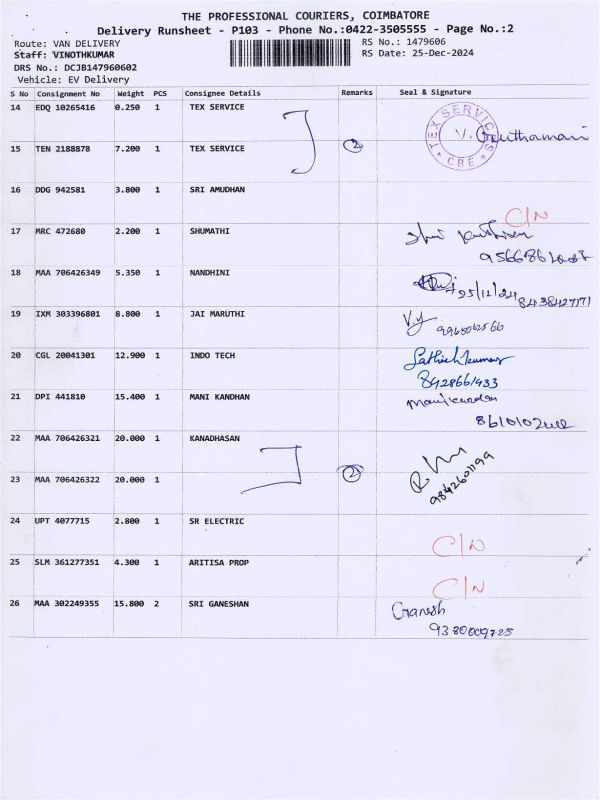 THE PROFESSIONAL COURIERS, COIMBATORE
Delivery Runsheet - P103 - Phone No.:0422-3505555 - Page No.:2
Route: VAN DELIVERY RS No.: 1479606
Staff: VINOTHKUMAR RS Date: 25-Dec-2024
DRS No.: DCJB147960602
Vehicle: EV Delivery
S No Consignment No Weight PCS Consignee Details Remarks Seal & Signature
14 EDQ 10265416 0.250 1 TEX SERVICE
TEX SERVICES CBE
V.
15 TEN 2188878 7.200 1 TEX SERVICE 2
16 DDG 942581 3.800 1 SRI AMUDHAN
C/N
17 MRC 472680 2.200 1 SHUMATHI
18 MAA 706426349 5.350 1 NANDHINI
25/12/24 8438427171
19 IXM 303396801 8.800 1 JAI MARUTHI
V.y
20 CGL 20041301 12.900 1 INDO TECH Sathishkumar
8428661933
21 DPI 441810 15.400 1 MANI KANDHAN Manikandan
22 MAA 706426321 20.000 1 KANADHASAN
23 MAA 706426322 20.000 1 2
9842601199
24 UPT 4077715 2.800 1 SR ELECTRIC
C/N
25 SLM 361277351 4.300 1 ARITISA PROP
C/N
26 MAA 302249355 15.800 2 SRI GANESHAN Ganesh
9380009725